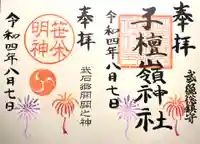 奉拝
子檀嶺神社
武石総鎮守
令和四年八月七日
奉拝
笹本
明神
武石郷開闢之神
令和四年八月七日